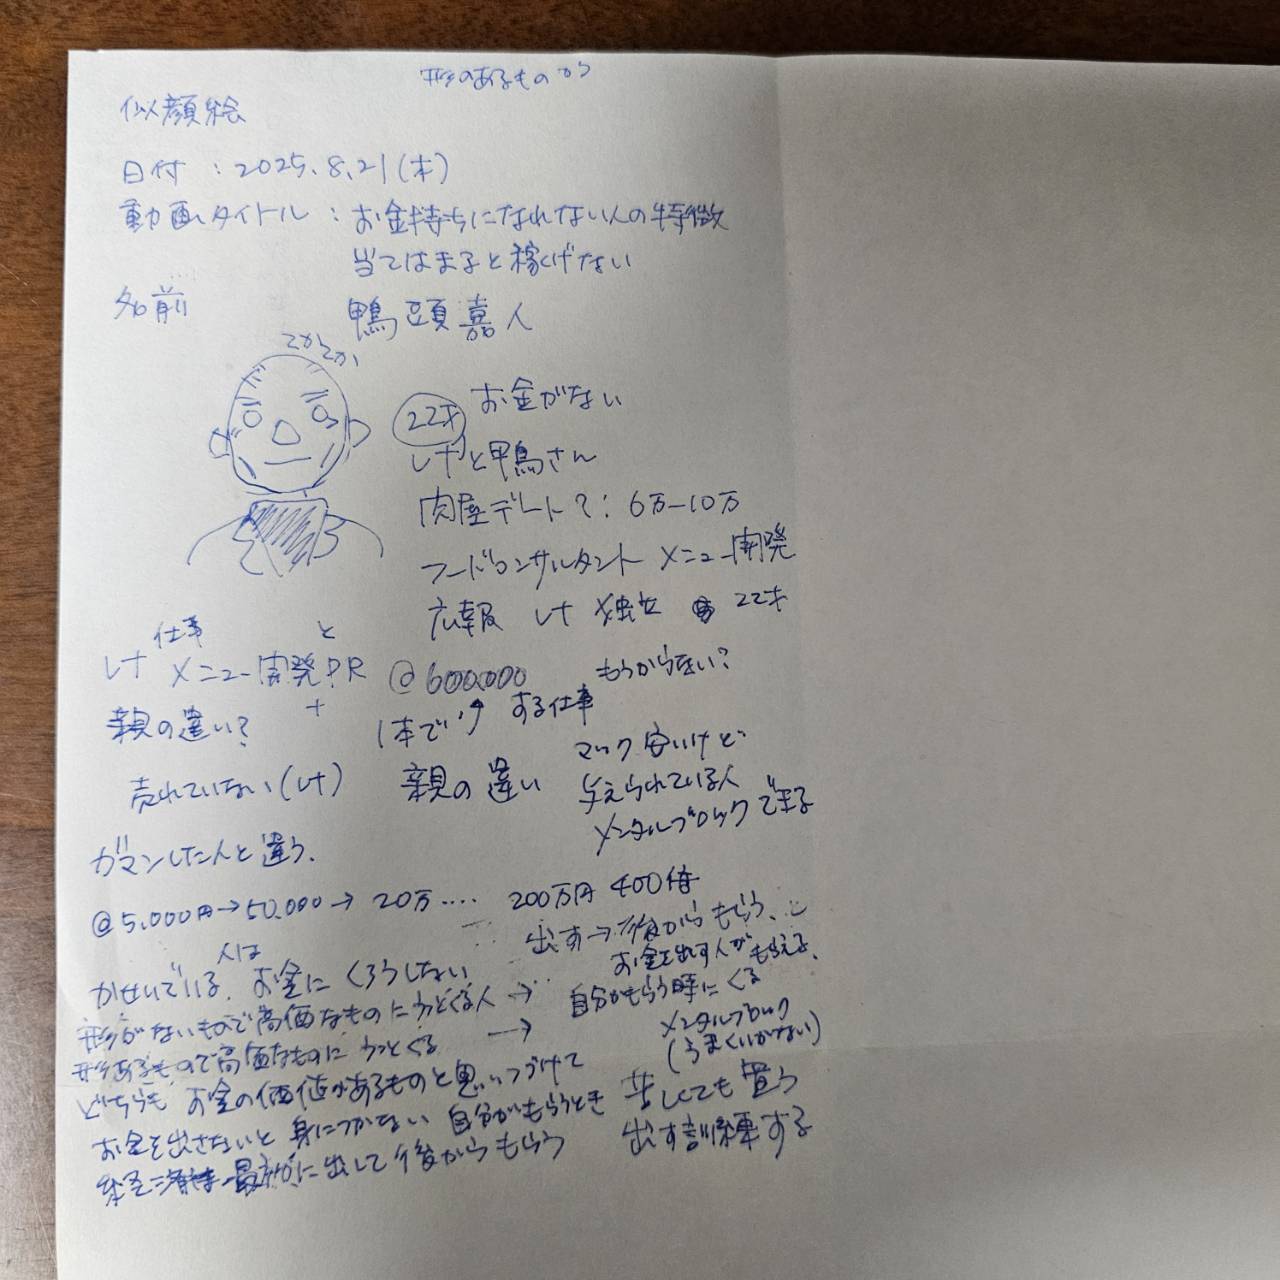 形のあるものから
似顔絵
日付:2025.8.21(木)
動画タイトル:お金持ちになれない人の特徴
当てはまると稼げない
名前 鴨頭嘉人
てかてか
22才 お金がない
しけと鴨さん
肉屋デート?:6万-10万
フードコンサルタント メニュー開発
広報 しけ 独立 22才
仕事 と
しけ メニュー開発PR @600,000 もうからない?
親の違い? + 1本で する仕事
売れていない(しけ) 親の違い
マック安いけど
与えられている人
メンタルブロックできる
ガマンした人と違う.
@5,000円→50,000→20万.... 200万円 400倍
出す→後からもらう.
お金を出す人がもらえる.
人は
かせいでいる. お金にくろうしない
形がないもので高価なものにうっとくる人→ 自分がもらう時にくる
形あるもので高価なものにうっとくる → メンタルブロック
(うまくいかない)
どちらも お金の価値があるものと思いつづけて
お金を出さないと身につかない 自分がもらうとき 苦しくても買う
経済は最初に出して後からもらう 出す訓練する